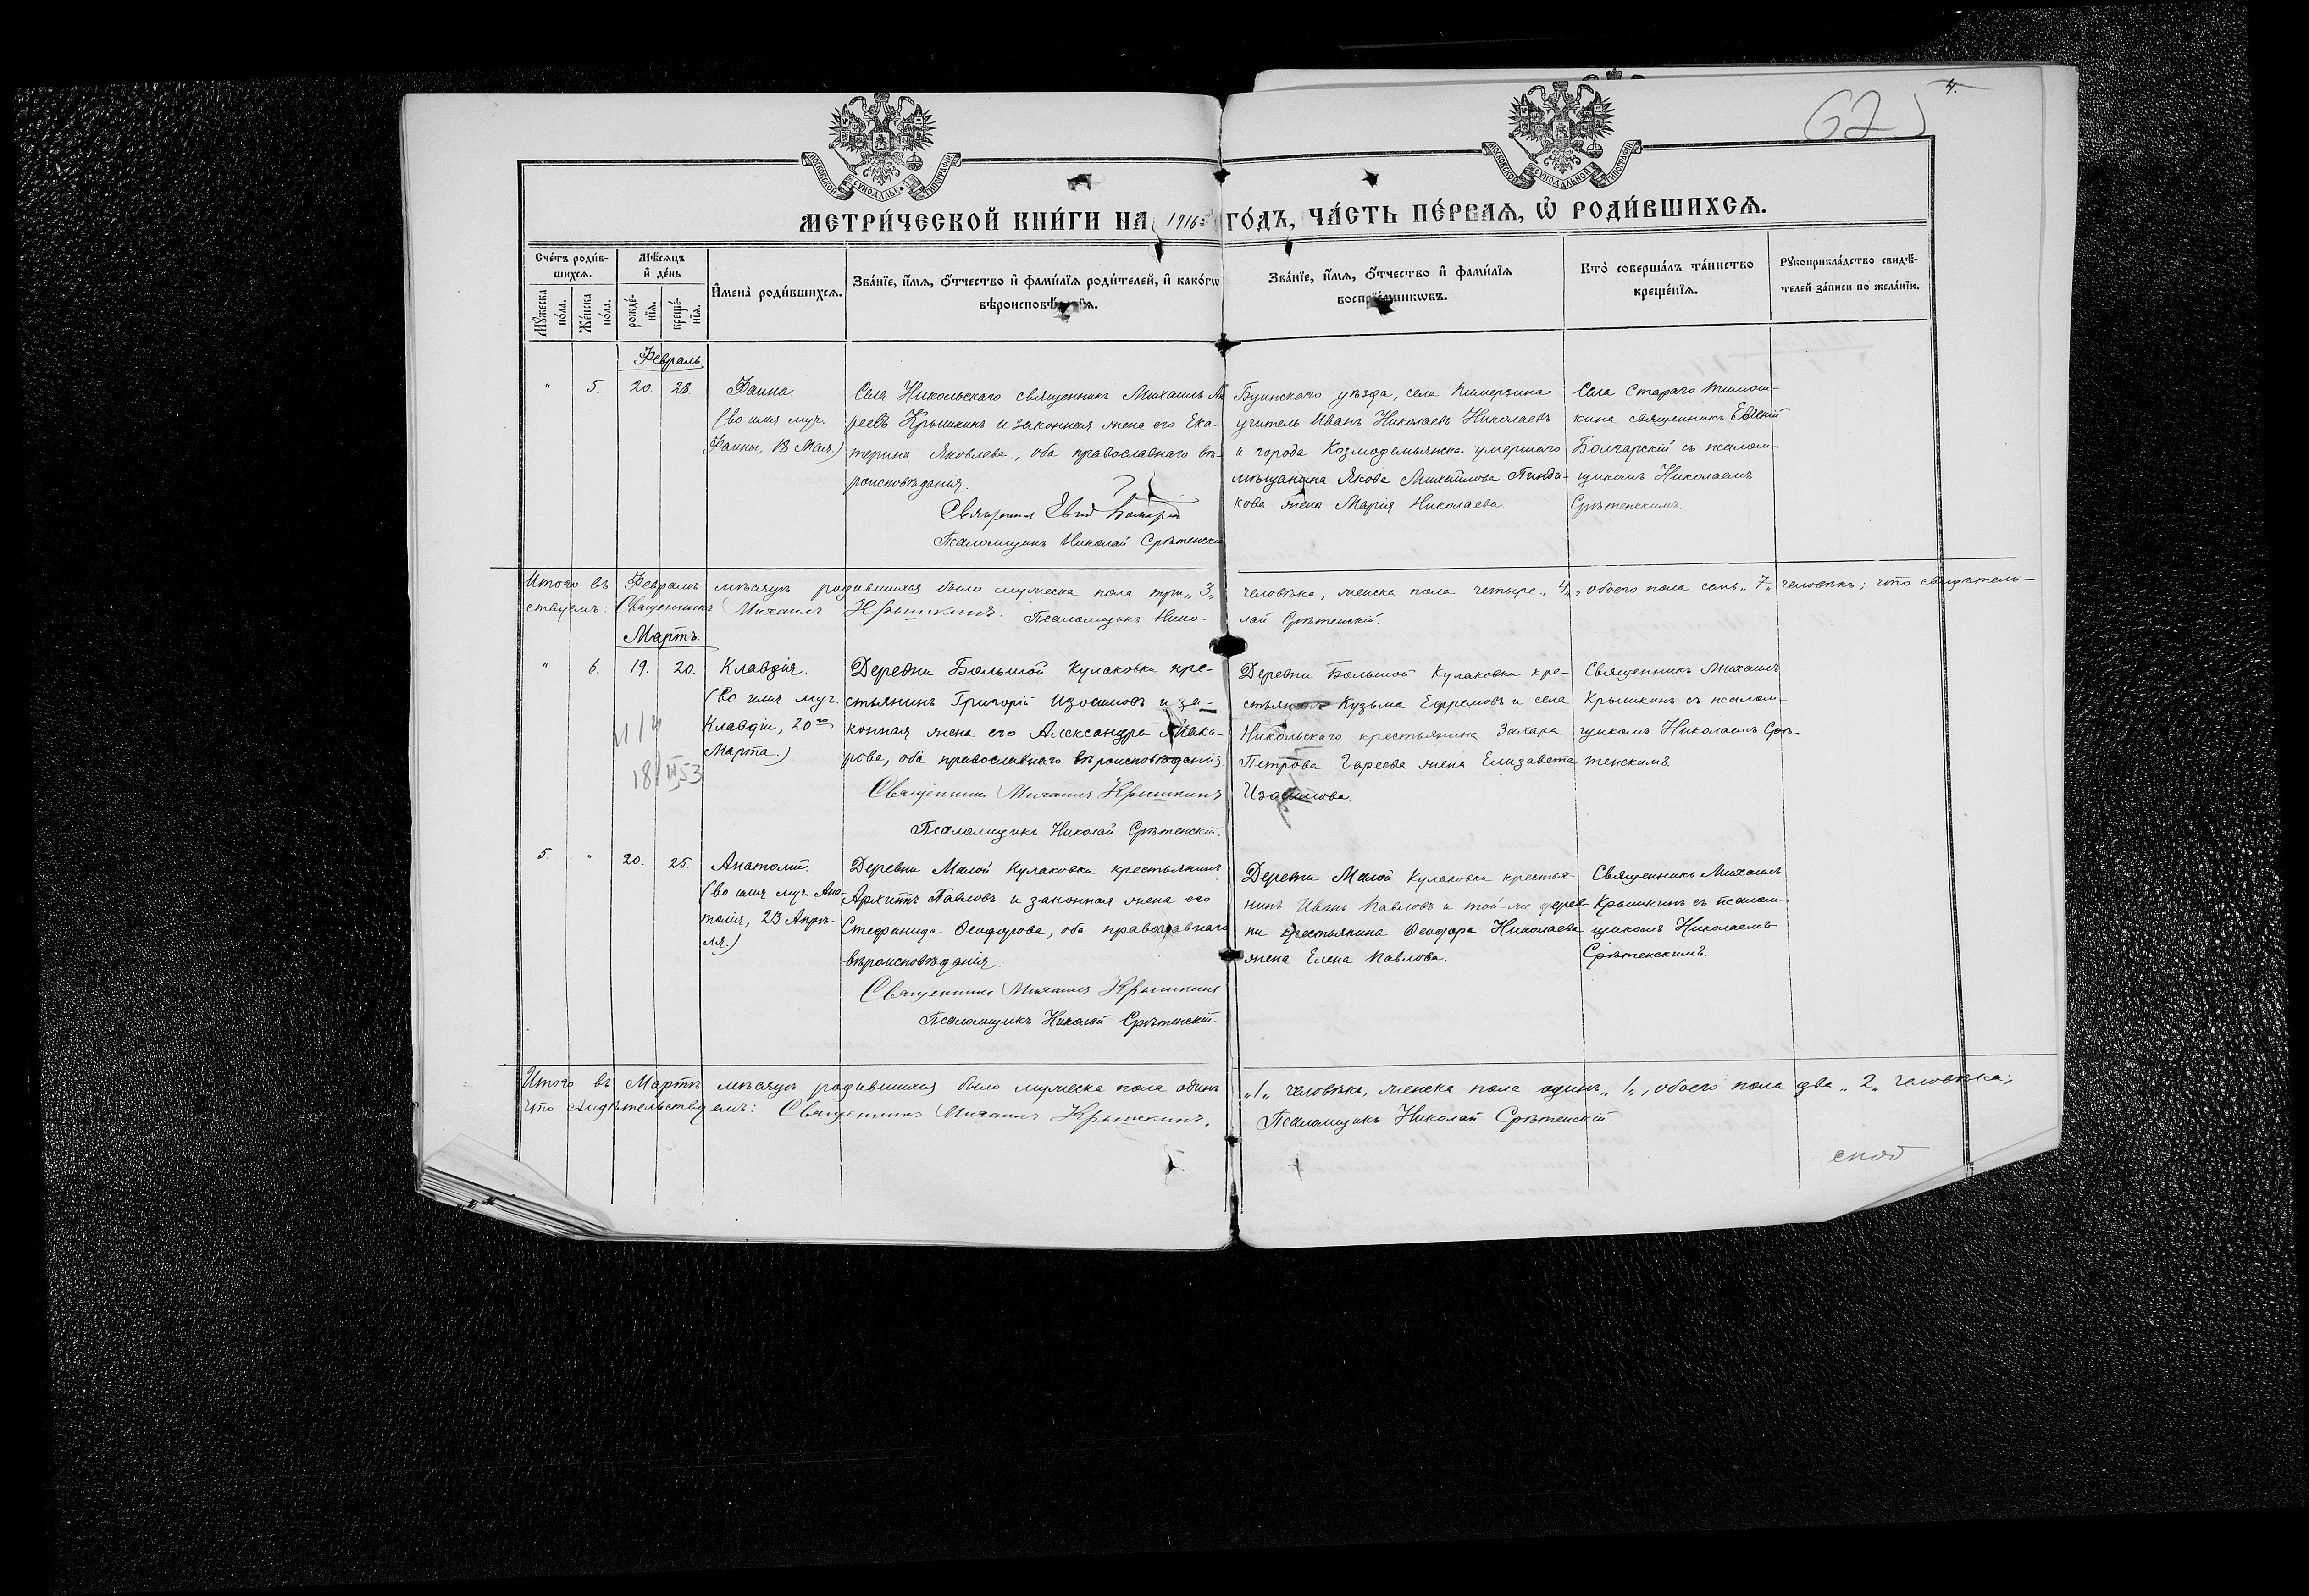 4.
625
МОСКОВСКОЙ СѴНОДАЛЬНОЙ ТИПОГРАФІИ
МОСКОВСКОЙ СѴНОДАЛЬНОЙ ТИПОГРАФІИ
МЕТРИ́ЧЕСКОЙ КНИ́ГИ НА 1916 ГО́ДЪ, ЧА́СТЬ ПЕ́РВАѦ, Ѡ҆ РОДИ́ВШИХСѦ.
Сче́тъ роди́в-
шихсѧ.
Мꙋ́жеска по́ла.
Же́нска по́ла.
Мѣ́сѧцъ
и҆ де́нь
рожде́-
нїѧ.
креще́-
нїѧ.
И҆мена̀ роди́вшихсѧ.
Зва́нїе, и҆́мѧ, ѻ҆́тчество и҆ фами́лїѧ роди́телей, и҆ како́гѡ
вѣроисповѣ́данїѧ.
Зва́нїе, и҆́мѧ, ѻ҆́тчество и҆ фами́лїѧ
воспрїе́мникѡвъ.
Кто̀ соверша́лъ та́инство
креще́нїѧ.
Рꙋкоприкла́дство свидѣ́-
телей за́писи по жела́нїю.
Февраль.
" 5. 20. 28. Фаина.
(во имя муч.
Фаины, 18 Мая.)
Села Никольскаго священникъ Михаилъ Ан
реевъ Крышкинъ и законная жена его Ека-
терина Яковлева, оба православнаго вѣ-
роисповѣданія.
Священник Евген Болгарск
Псаломщикъ Николай Срѣтенскі
Буинскаго уѣзда, села
учитель Иванъ Николаевъ Николаевъ
и города Козмодемьянска умершаго
мѣщанина Якова Михайлова Пинда-
кова жена Марія Николаева.
Села Стараго Тимош-
кина священникъ Евгеній
Болгарскій съ псалом-
щикомъ Николаемъ
Срѣтенскимъ.
Итого въ Февралѣ мѣсяцѣ родившихся было мужеска пола три „3„ человѣка, женска пола четыре „4„, обоего пола семь „7„ человѣкъ; что свидѣтель-
ствуемъ: Священникъ Михаилъ Крышкинъ. Псаломщикъ Нико- лай Срѣтенскій.
Мартъ.
" 6. 19. 20. Клавдія.
(Во имя муч.
Клавдіи, 20го
Марта.)
18/III 53
Деревни Большой Кулаковки кре-
стьянинъ Григорій Изосимовъ и за-
конная жена его Александра Мака-
рова, оба православнаго вѣроисповѣданія.
Священникъ Михаилъ Крышкинъ
Псаломщикъ Николай Срѣтенскій.
Деревни Большой Кулаковки кре-
стьянинъ Кузьма Ефремовъ и села
Никольскаго крестьянина Захара
Петрова жена Елизавета
Изосимова.
Священникъ Михаилъ
Крышкинъ съ псалом-
щикомъ Николаемъ Срѣ-
тенскимъ.
5. " 20. 25. Анатолій.
(во имя муч. Ана-
толія, 23 Апрѣ-
ля.)
Деревни Малой Кулаковки крестьянинъ
Архиппъ Павловъ и законная жена его
Стефанида Ѳеодорова, оба православнаго
вѣроисповѣданія.
Священникъ Михаилъ Крышкинъ
Псаломщикъ Николай Срѣтенскій.
Деревни Малой Кулаковки крестья-
нинъ Иванъ Павловъ и той-же дерев-
ни крестьянина Ѳеодора Николаева
жена Елена Павлова.
Священникъ Михаилъ
Крышкинъ съ псалом-
щикомъ Николаемъ
Срѣтенскимъ.
Итого въ Мартѣ мѣсяцѣ родившихся было мужеска пола одинъ „1„ человѣкъ, женска пола одинъ „1„, обоего пола два „2„ человѣка;
что свидѣтельствуемъ: Священникъ Михаилъ Крышкинъ. Псаломщикъ Николай Срѣтенскій.